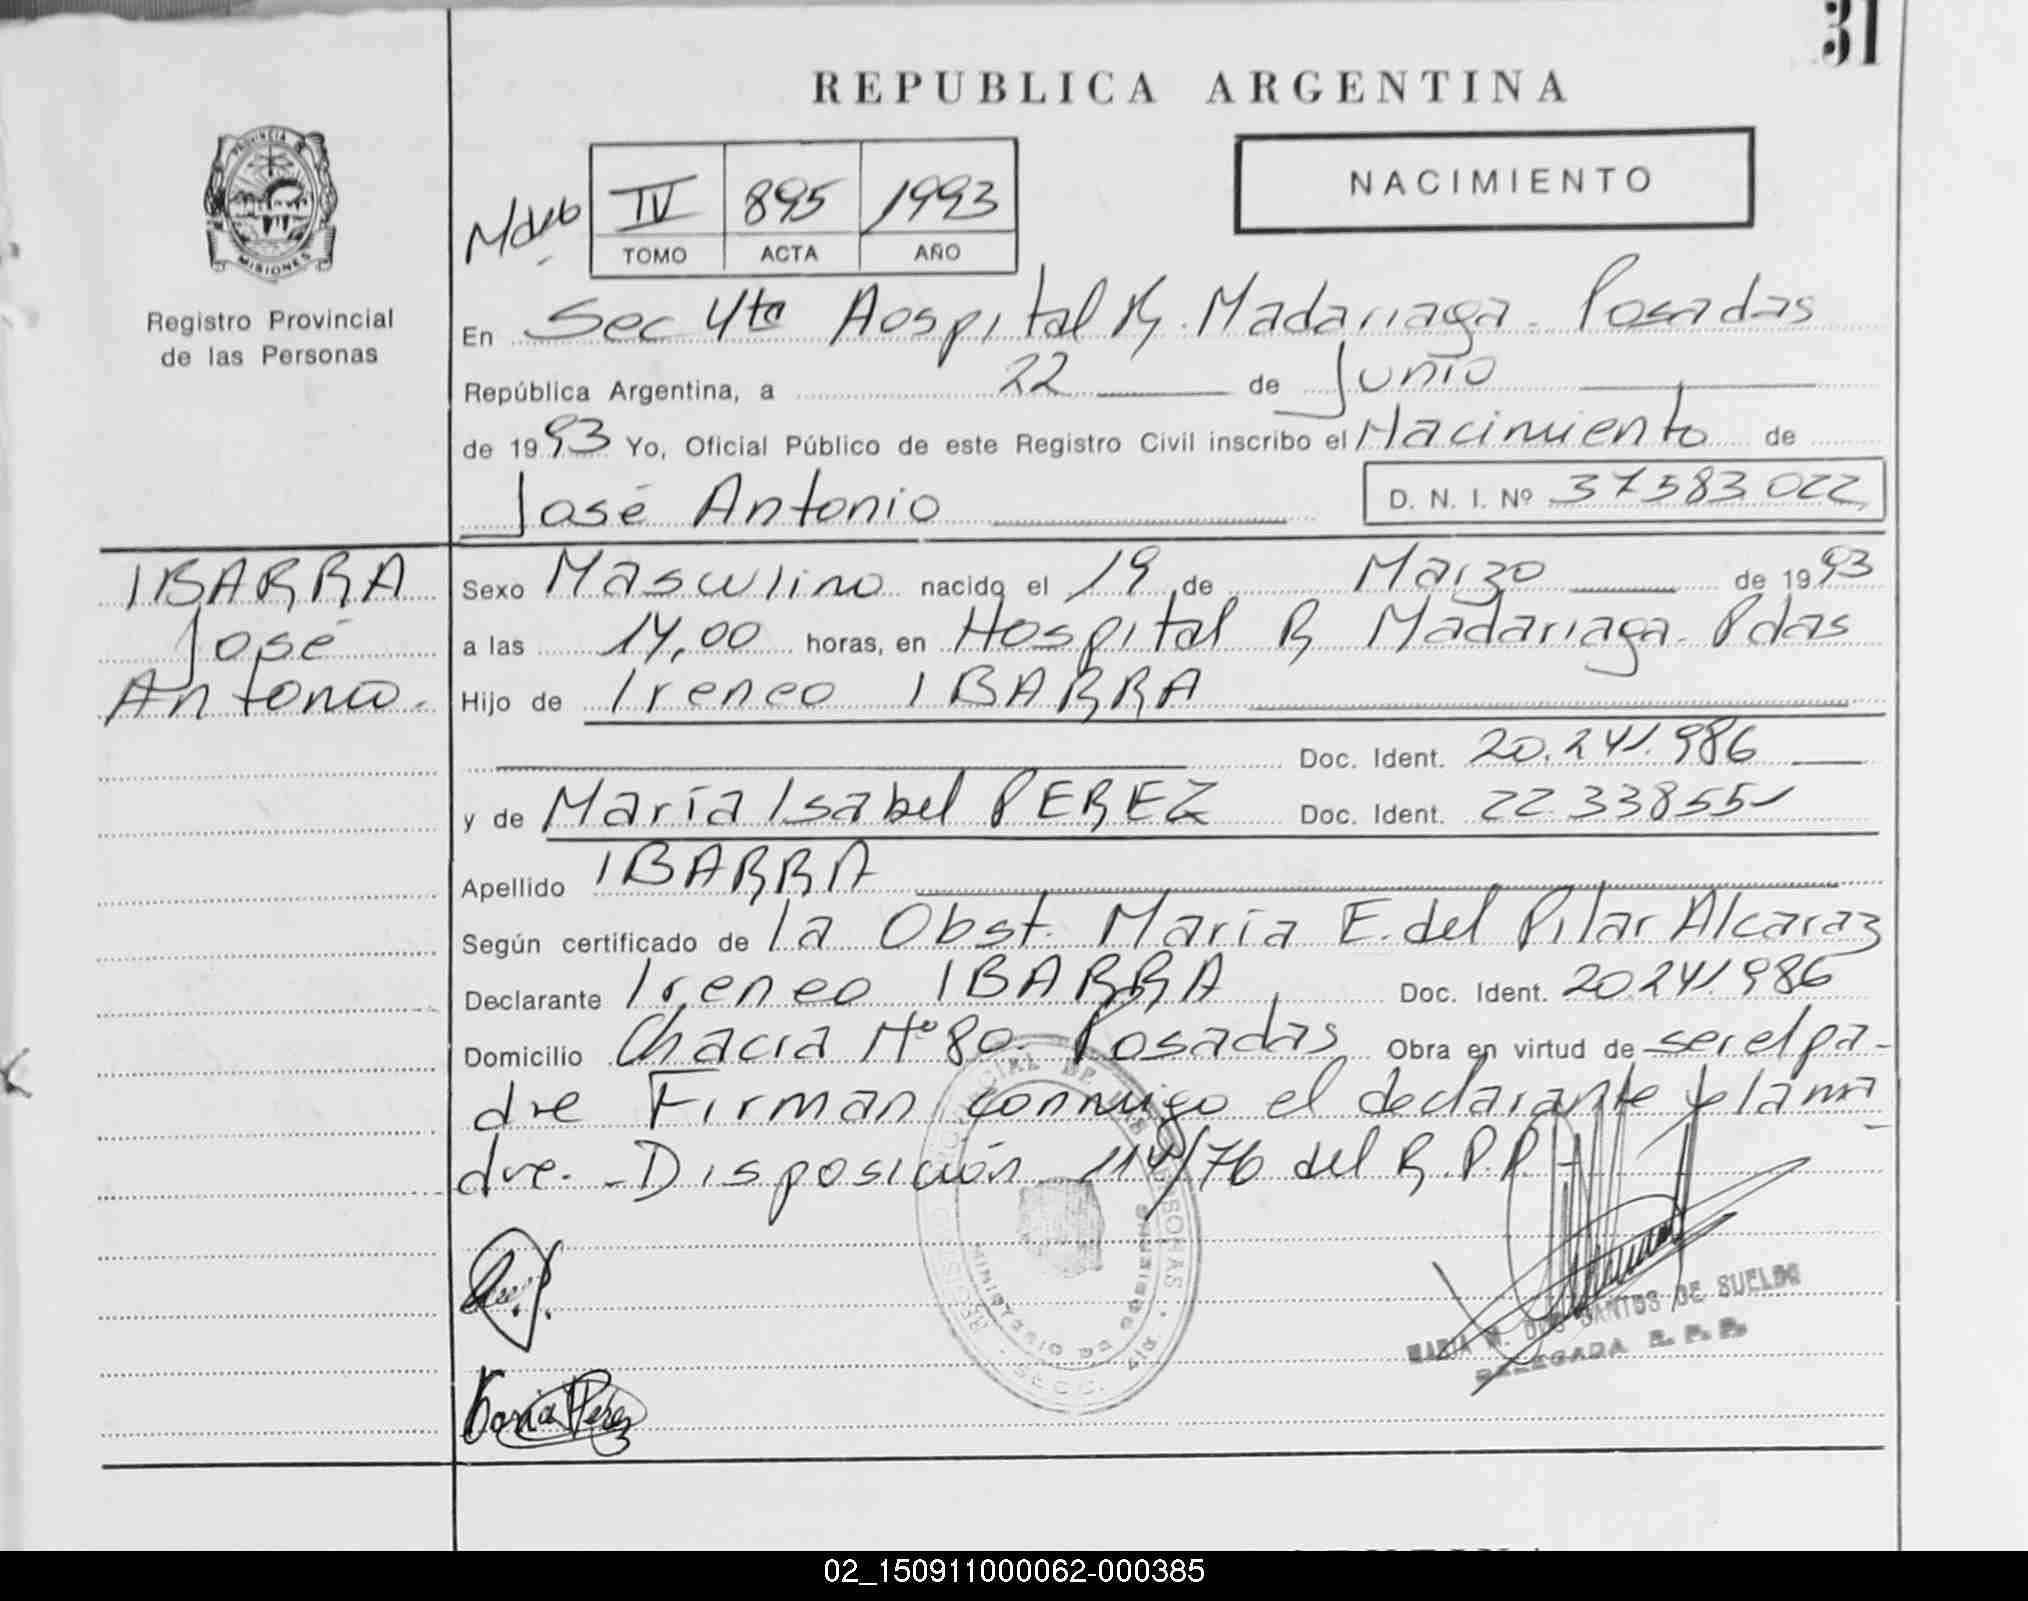 31
REPUBLICA ARGENTINA
PROVINCIA
MISIONES
Registro Provincial
de las Personas
NACIMIENTO
IV 895 1993
TOMO ACTA AÑO
En Sec 4ta Hospital R. Madariaga - Posadas
República Argentina, a 22 de Junio
de 1993 Yo, Oficial Público de este Registro Civil inscribo el Nacimiento de
José Antonio D. N. I. Nº 37583022
IBARRA
José
Antonio.
Sexo Masculino nacido el 19 de Marzo de 1993
a las 14,00 horas, en Hospital R Madariaga - Pdas
Hijo de Ireneo IBARRA
Doc. Ident. 20.241.986
y de María Isabel PEREZ Doc. Ident. 22.338551
Apellido IBARRA
Según certificado de la Obst. María E. del Pilar Alcaraz
Declarante Ireneo IBARRA Doc. Ident. 20.241.986
Domicilio Chacra Nº 80. Posadas Obra en virtud de ser el pa-
dre Firman conmigo el declarante y la ma
dre. - Disposición 114/76 del R.P.P.
MARIA M. DOS SANTOS DE SUELDO
DELEGADA R. P. P.
María Perez
02_150911000062-000385